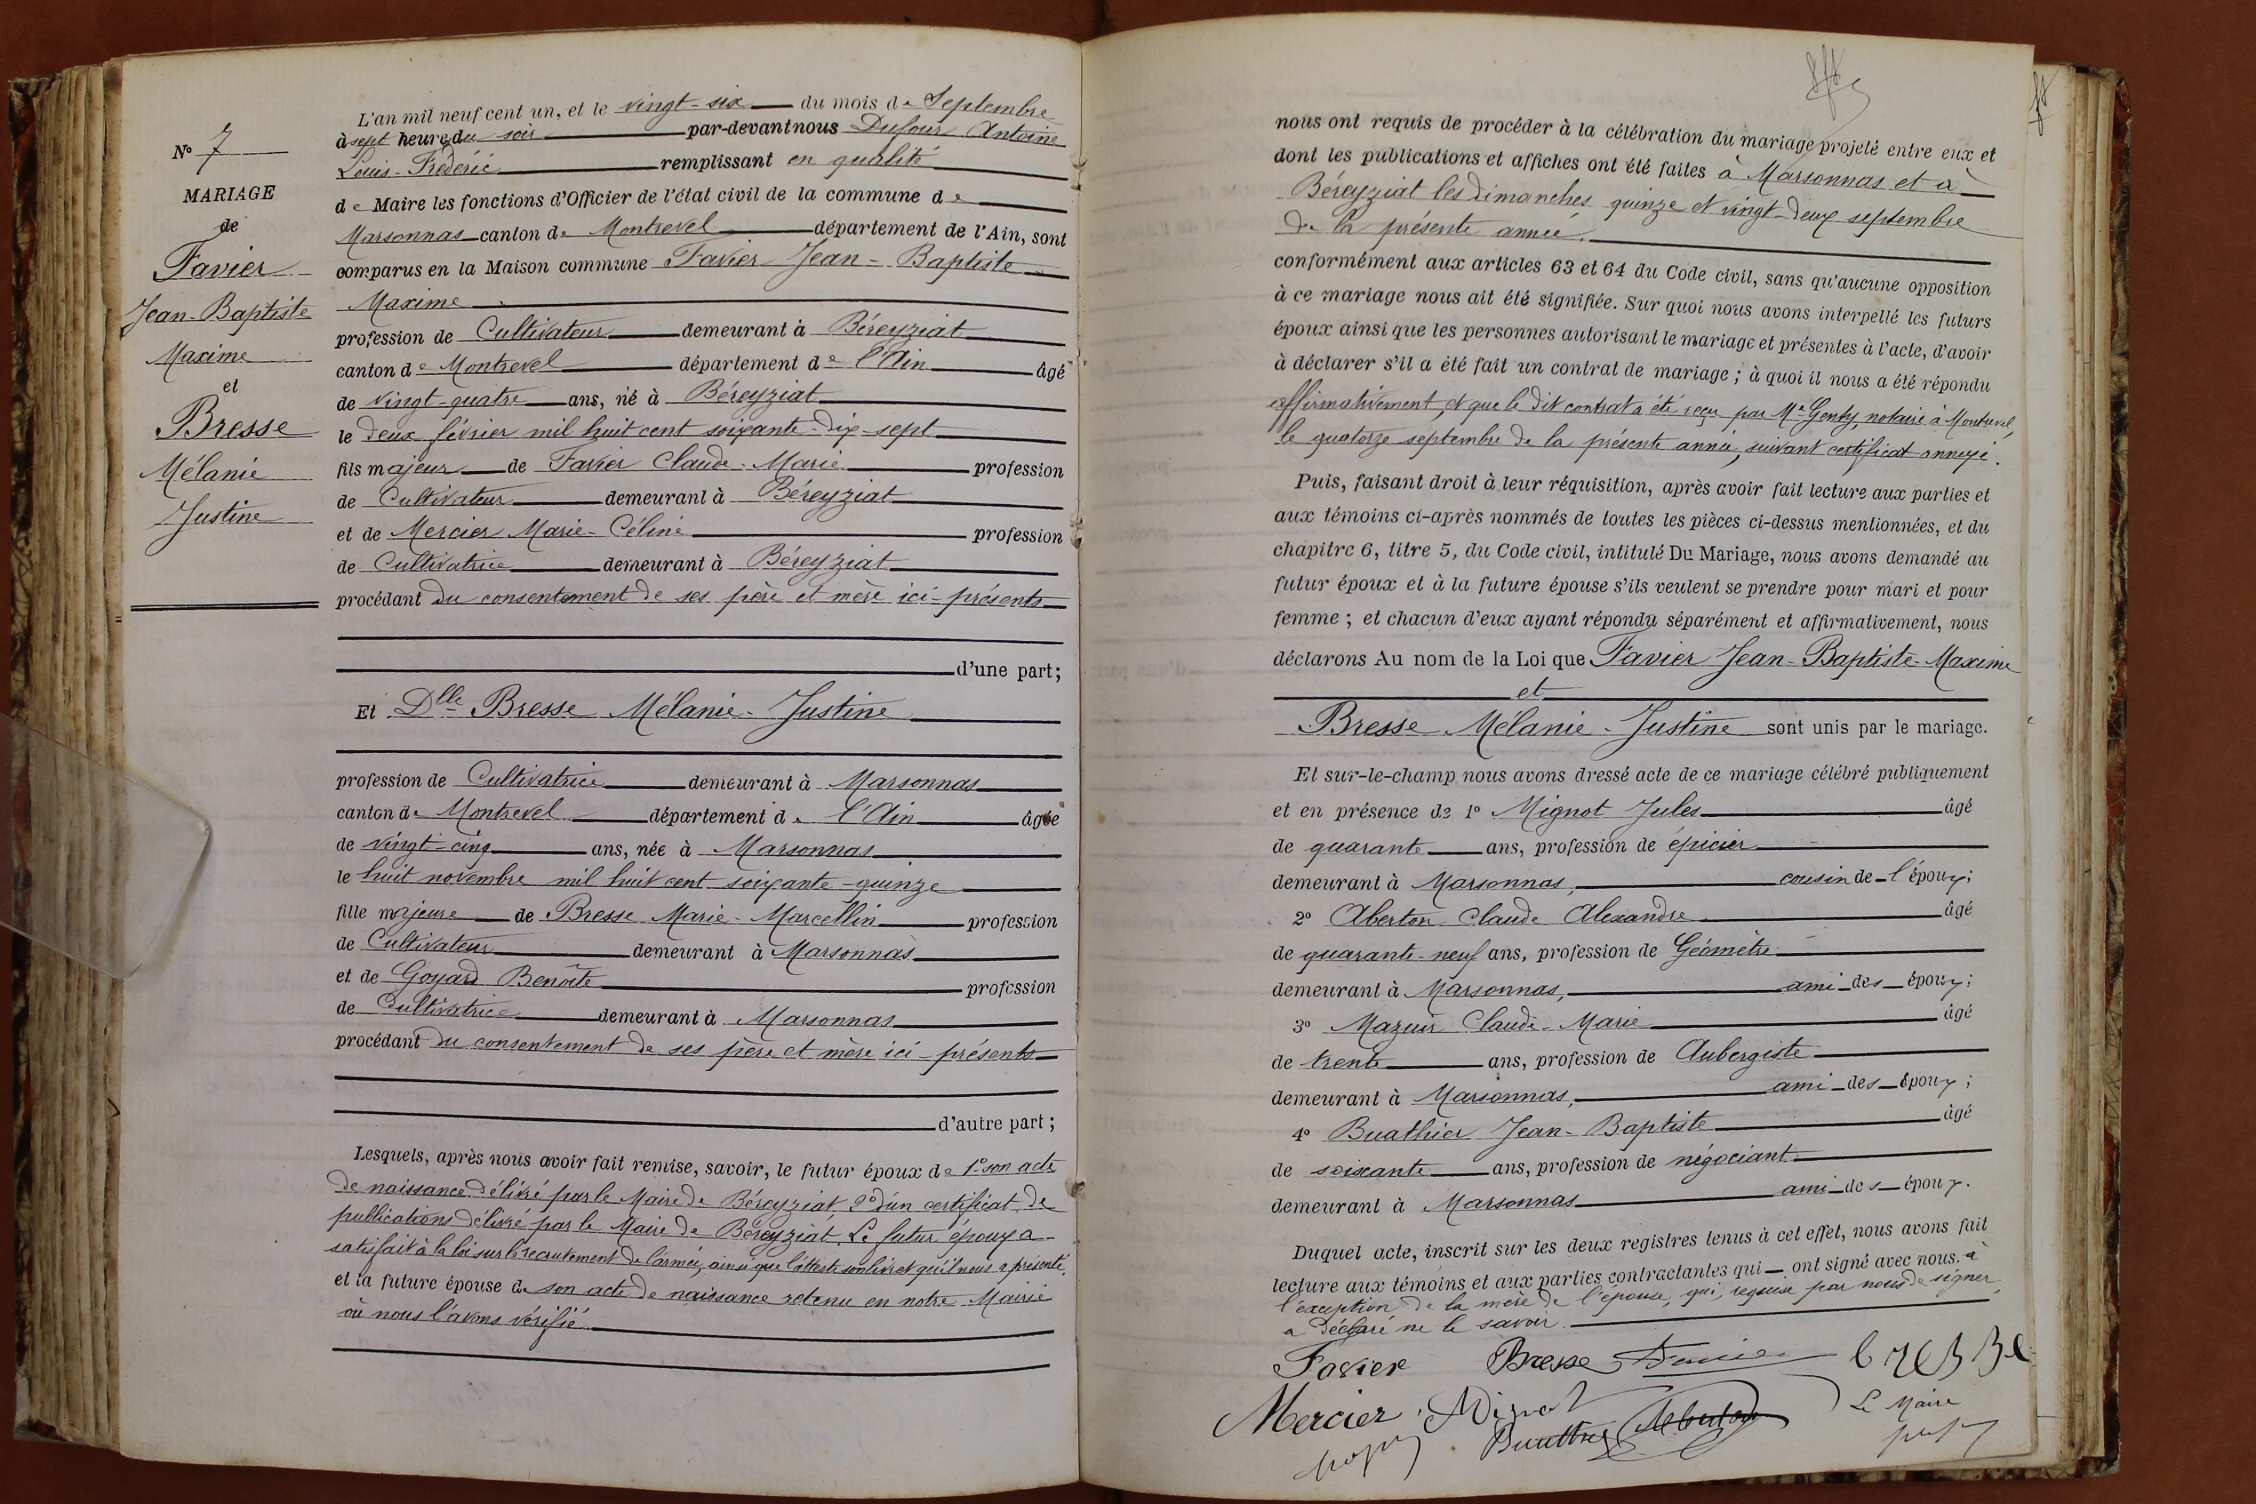 N° 7
MARIAGE
de
Favier
Jean-Baptiste
Maxime
et
Bresse
Mélanie
Justine
L'an mil neuf cent un, et le vingt-six du mois de Septembre
à sept heure du soir par-devant nous Dufour Antoine
Louis-Fréderic remplissant en qualité
de Maire les fonctions d'Officier de l'état civil de la commune de
Marsonnas canton de Montrevel département de l'Ain, sont
comparus en la Maison commune Favier Jean-Baptiste
Maxime
profession de Cultivateur demeurant à Béreyziat
canton de Montrevel département de l'Ain âgé
de vingt-quatre ans, né à Béreyziat
le deux février mil huit cent soixante-dix-sept
fils majeur de Favier Claude-Marie profession
de Cultivateur demeurant à Béreyziat
et de Mercier Marie-Céline profession
de Cultivatrice demeurant à Béreyziat
procédant du consentement de ses père et mère ici-présents
d'une part;
Et Dlle Bresse Mélanie-Justine
profession de Cultivatrice demeurant à Marsonnas
canton de Montrevel département de l'Ain âgée
de vingt-cinq ans, née à Marsonnas
le huit novembre mil huit cent soixante-quinze
fille majeure de Bresse Marie-Marcellin profession
de Cultivateur demeurant à Marsonnas
et de Goyard Benoîte profession
de Cultivatrice demeurant à Marsonnas
procédant du consentement de ses père et mère ici-présents
d'autre part;
Lesquels, après nous avoir fait remise, savoir, le futur époux de 1° son acte
de naissance délivré par le Maire de Béreyziat 2° d'un certificat de
publications délivré par le Maire de Béreyziat. Le futur époux a
satisfait à la loi sur le recrutement de l'armée, ainsi que l'atteste son livret qu'il nous a présenté,
et la future épouse de son acte de naissance retenu en notre Mairie
où nous l'avons vérifié.
nous ont requis de procéder à la célébration du mariage projeté entre eux et
dont les publications et affiches ont été faites à Marsonnas et à
Béreyziat les dimanches quinze et vingt-deux septembre
de la présente année.
conformément aux articles 63 et 64 du Code civil, sans qu'aucune opposition
à ce mariage nous ait été signifiée. Sur quoi nous avons interpellé les futurs
époux ainsi que les personnes autorisant le mariage et présentes à l'acte, d'avoir
à déclarer s'il a été fait un contrat de mariage; à quoi il nous a été répondu
affirmativement, et que le dit contrat a été reçu par Me Genty, notaire à Montrevel,
le quatorze septembre de la présente année, suivant certificat annexé.
Puis, faisant droit à leur réquisition, après avoir fait lecture aux parties et
aux témoins ci-après nommés de toutes les pièces ci-dessus mentionnées, et du
chapitre 6, titre 5, du Code civil, intitulé Du Mariage, nous avons demandé au
futur époux et à la future épouse s'ils veulent se prendre pour mari et pour
femme; et chacun d'eux ayant répondu séparément et affirmativement, nous
déclarons Au nom de la Loi que Favier Jean-Baptiste-Maxime
et
Bresse Mélanie-Justine sont unis par le mariage.
Et sur-le-champ nous avons dressé acte de ce mariage célébré publiquement
et en présence de 1° Mignot Jules âgé
de quarante ans, profession de épicier
demeurant à Marsonnas, cousin de l'époux;
2° Aberton Claude Alexandre âgé
de quarante-neuf ans, profession de Géomètre
demeurant à Marsonnas, ami des époux;
3° Mazuir Claude-Marie âgé
de trente ans, profession de Aubergiste
demeurant à Marsonnas, ami des époux;
4° Buathier Jean-Baptiste âgé
de soixante ans, profession de négociant
demeurant à Marsonnas ami des époux.
Duquel acte, inscrit sur les deux registres tenus à cet effet, nous avons fait
lecture aux témoins et aux parties contractantes qui ont signé avec nous. à
l'exception de la mère de l'épouse, qui, requise par nous de signer,
a déclaré ne le savoir.
Favier Bresse Favier bresse
Mercier Mignot Aberton Le Maire
Buathier